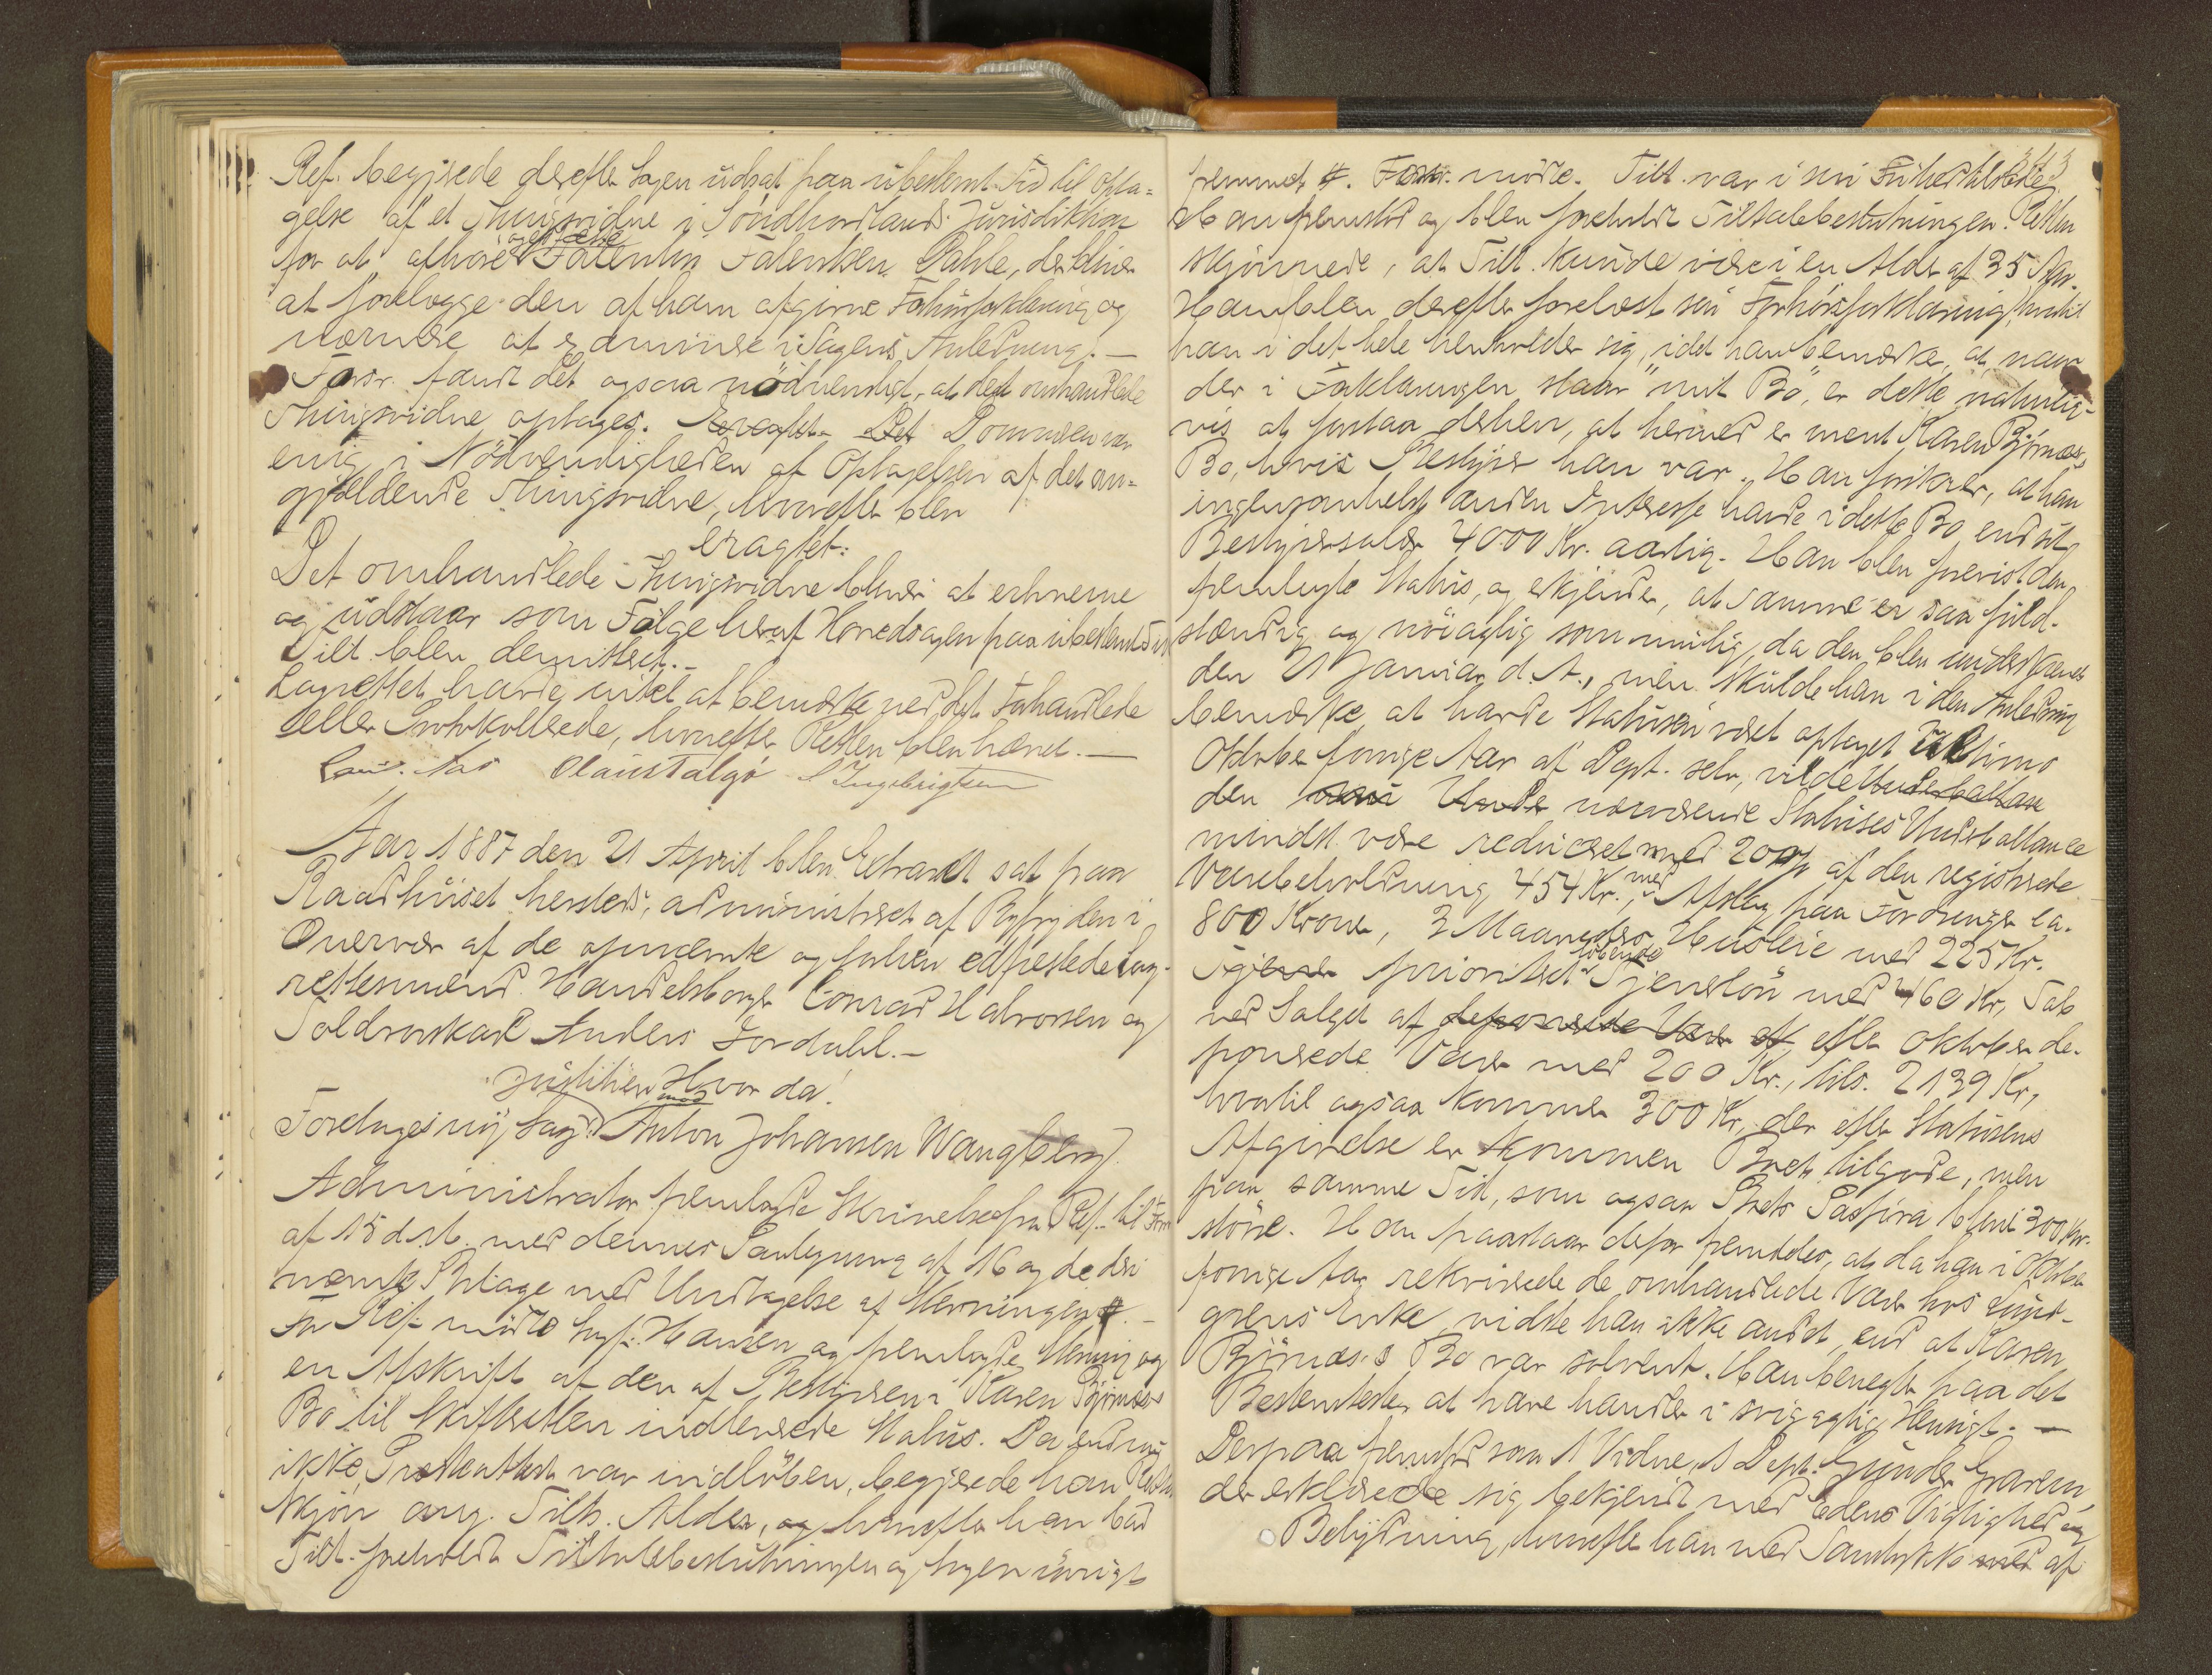 Ref. begjærede derefter Sagen udsat paa ubestemt Tid til Opta-
gelse af et Thingsvidne i Söndhordlands Jurisdiktion
for at afhöre og edfæste Falentin Falentsen Dahle, der bliver
at forelægge den af ham afgivne Forhörsforklaring og
nærmere at examinere i Sagens Anledning. —
Forsv. fandt det ogsaa nödvendigt, at det omhandlede
Thingsvidne optages. Dommeren var
enig i Nödvendigheden af Optagelsen af det an-
gjældende Thingsvidne, hvorefter blev
eragtet:
Det omhandlede Thingsvidne bliver at erhverve
og udstaar som Fölge heraf Hovedsagen paa ubestemt Tid
Tilt. blev demitteret. —
Lagrettet havde intet at bemærke ved det Forhandlede
eller Protokollerede, hvorefter Retten blev hævet. —
Olaus Talgö Ingebrigtsen
Aar 1887 den 21 April blev Extraret sat paa
Raadhuset hersteds, administreret af Byfogden i
Overvær af de opnævnte og forhen edfæstede Lag-
rettesmænd Handelsborger Conrad Halvorsen og
Toldrorskarl Anders Jordahl. —
Hvor da!
Foretages ny Sag: Justitien mod Anton Johansen Wangberg.
Administrator fremlagde Skrivelse fra Ref. til Forsv.
af 15 d. M. med dennes Paategning af 16 og de deri
nævnte Bilage med Undtagelse af Stevningen #. —
For Ref. mödte Sagf. Hansen og fremlagde Stevning og
en Afskrift af den af Bestyreren i Karen Björnæs's
Bo til Skifteretten indleverede Status. Da endnu
ikke Præsteattest var indlöben, begjærede han Rettens
Skjön ang. Tilts. Alder, og hvorefter han bad
Tilt. foreholdt Tiltalebeslutningen og Sagen iövrigt
fremmet #. Forsv. mödte. Tilt. var i sin Frihed tilstede.
Han fremstod og blev foreholdt Tiltalebeslutningen. Retten
skjönnede, at Tilt. kunde være i en Alder af 35 Aar.
Han blev derefter forelæst sin Forhörsforklaring, hvortil
han i det hele henholder sig, idet han bemærke, at naar
der i Forklaringen staar "mit Bo", er dette naturlig-
vis at forstaa derhen, at hermed er ment Karen Björnæs's
Bo, hvis Bestyrer han var. Han forsikrer, at han
ingensomhelst anden Interesse havde i dette Bo end sit
Bestyrersalær 4000 Kr. aarlig. Han blev forevist den
fremlagte Status, og erkjender, at samme er saa fuld-
stændig og nöiagtig som mulig, da den blev underskrevet
den 21 Januar d. A., men skulde han i den Anledning
bemærke, at havde Statusen været optaget Ultimo
Oktober forrige Aar af Dept. selv, vilde
den nærværende Statuses Underballance
mindst være reduceret med 20% af den registrerede
Varebeholdning 454 Kr., med Afslag paa Fordringer ca.
800 Kroner, 3 Maaneders Husleie med 225 Kr.
prioriteret löbende Tjenerlön med 460 Kr, Tab
ved Salget af efter Oktober de-
ponerede Varer med 200 Kr., tils. 2139 Kr,
hvortil ogsaa kommer 300 Kr, der efter Statusens
Afgivelse er kommen Boet tilgode, men
paa samme Tid, som ogsaa Boets Passiva blev 300 Kr.
större. Han paastaar derfor fremdeles, at da han i Oktober
forrige Aar rekvirerede de omhandlede Varer hos Lund-
grens Enke, vidste han ikke andet, end at Karen
Björnæs's Bo var solvent. Han benegter paa det
Bestemteste at have handlet i svigagtig Hensigt. —
Derpaa fremstod som 1 Vidne, 1 Dept. Gunder Gravem,
der erklærede sig bekjendt med Edens Vigtighed og
Betydning, hvorefter han med Samtykke af